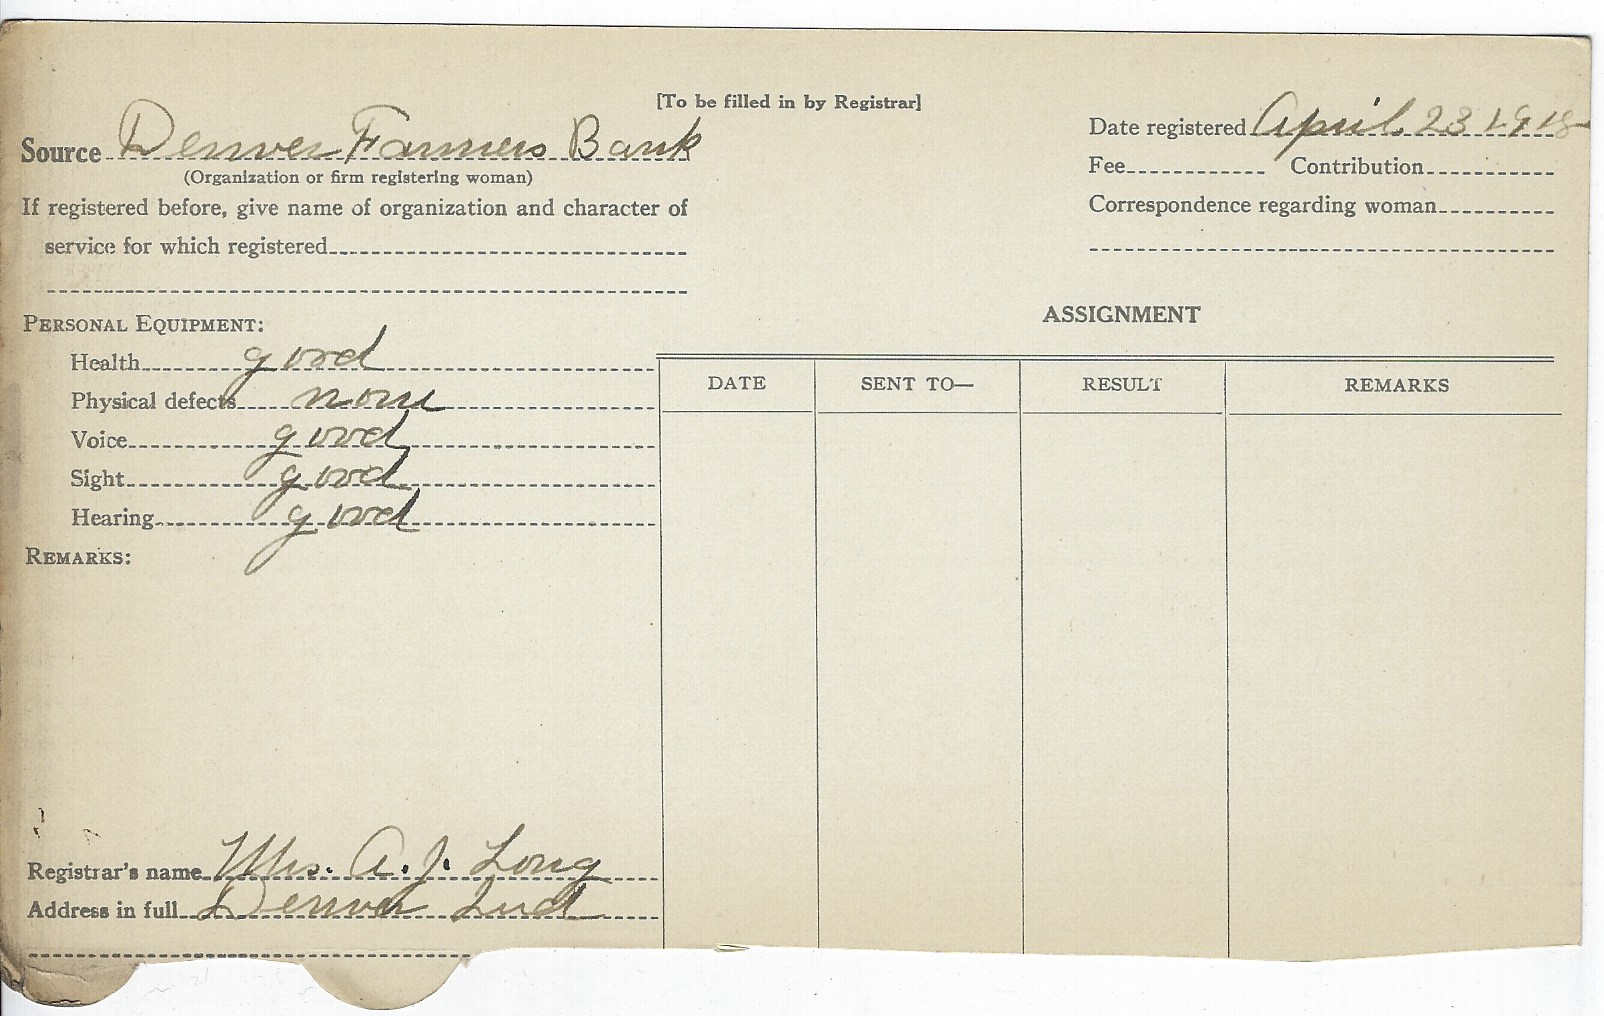 [To be filled in by Registrar]
Source Denver Farmers Bank
(Organization or firm registering woman)
If registered before, give name of organization and character of
service for which registered
Date registered April 23 1918
Fee Contribution
Correspondence regarding woman
PERSONAL EQUIPMENT:
Health good
Physical defects none
Voice good
Sight good
Hearing good
REMARKS:
Registrar's name Mrs. A. J. Long
Address in full Denver Ind
ASSIGNMENT
DATE SENT TO— RESULT REMARKS